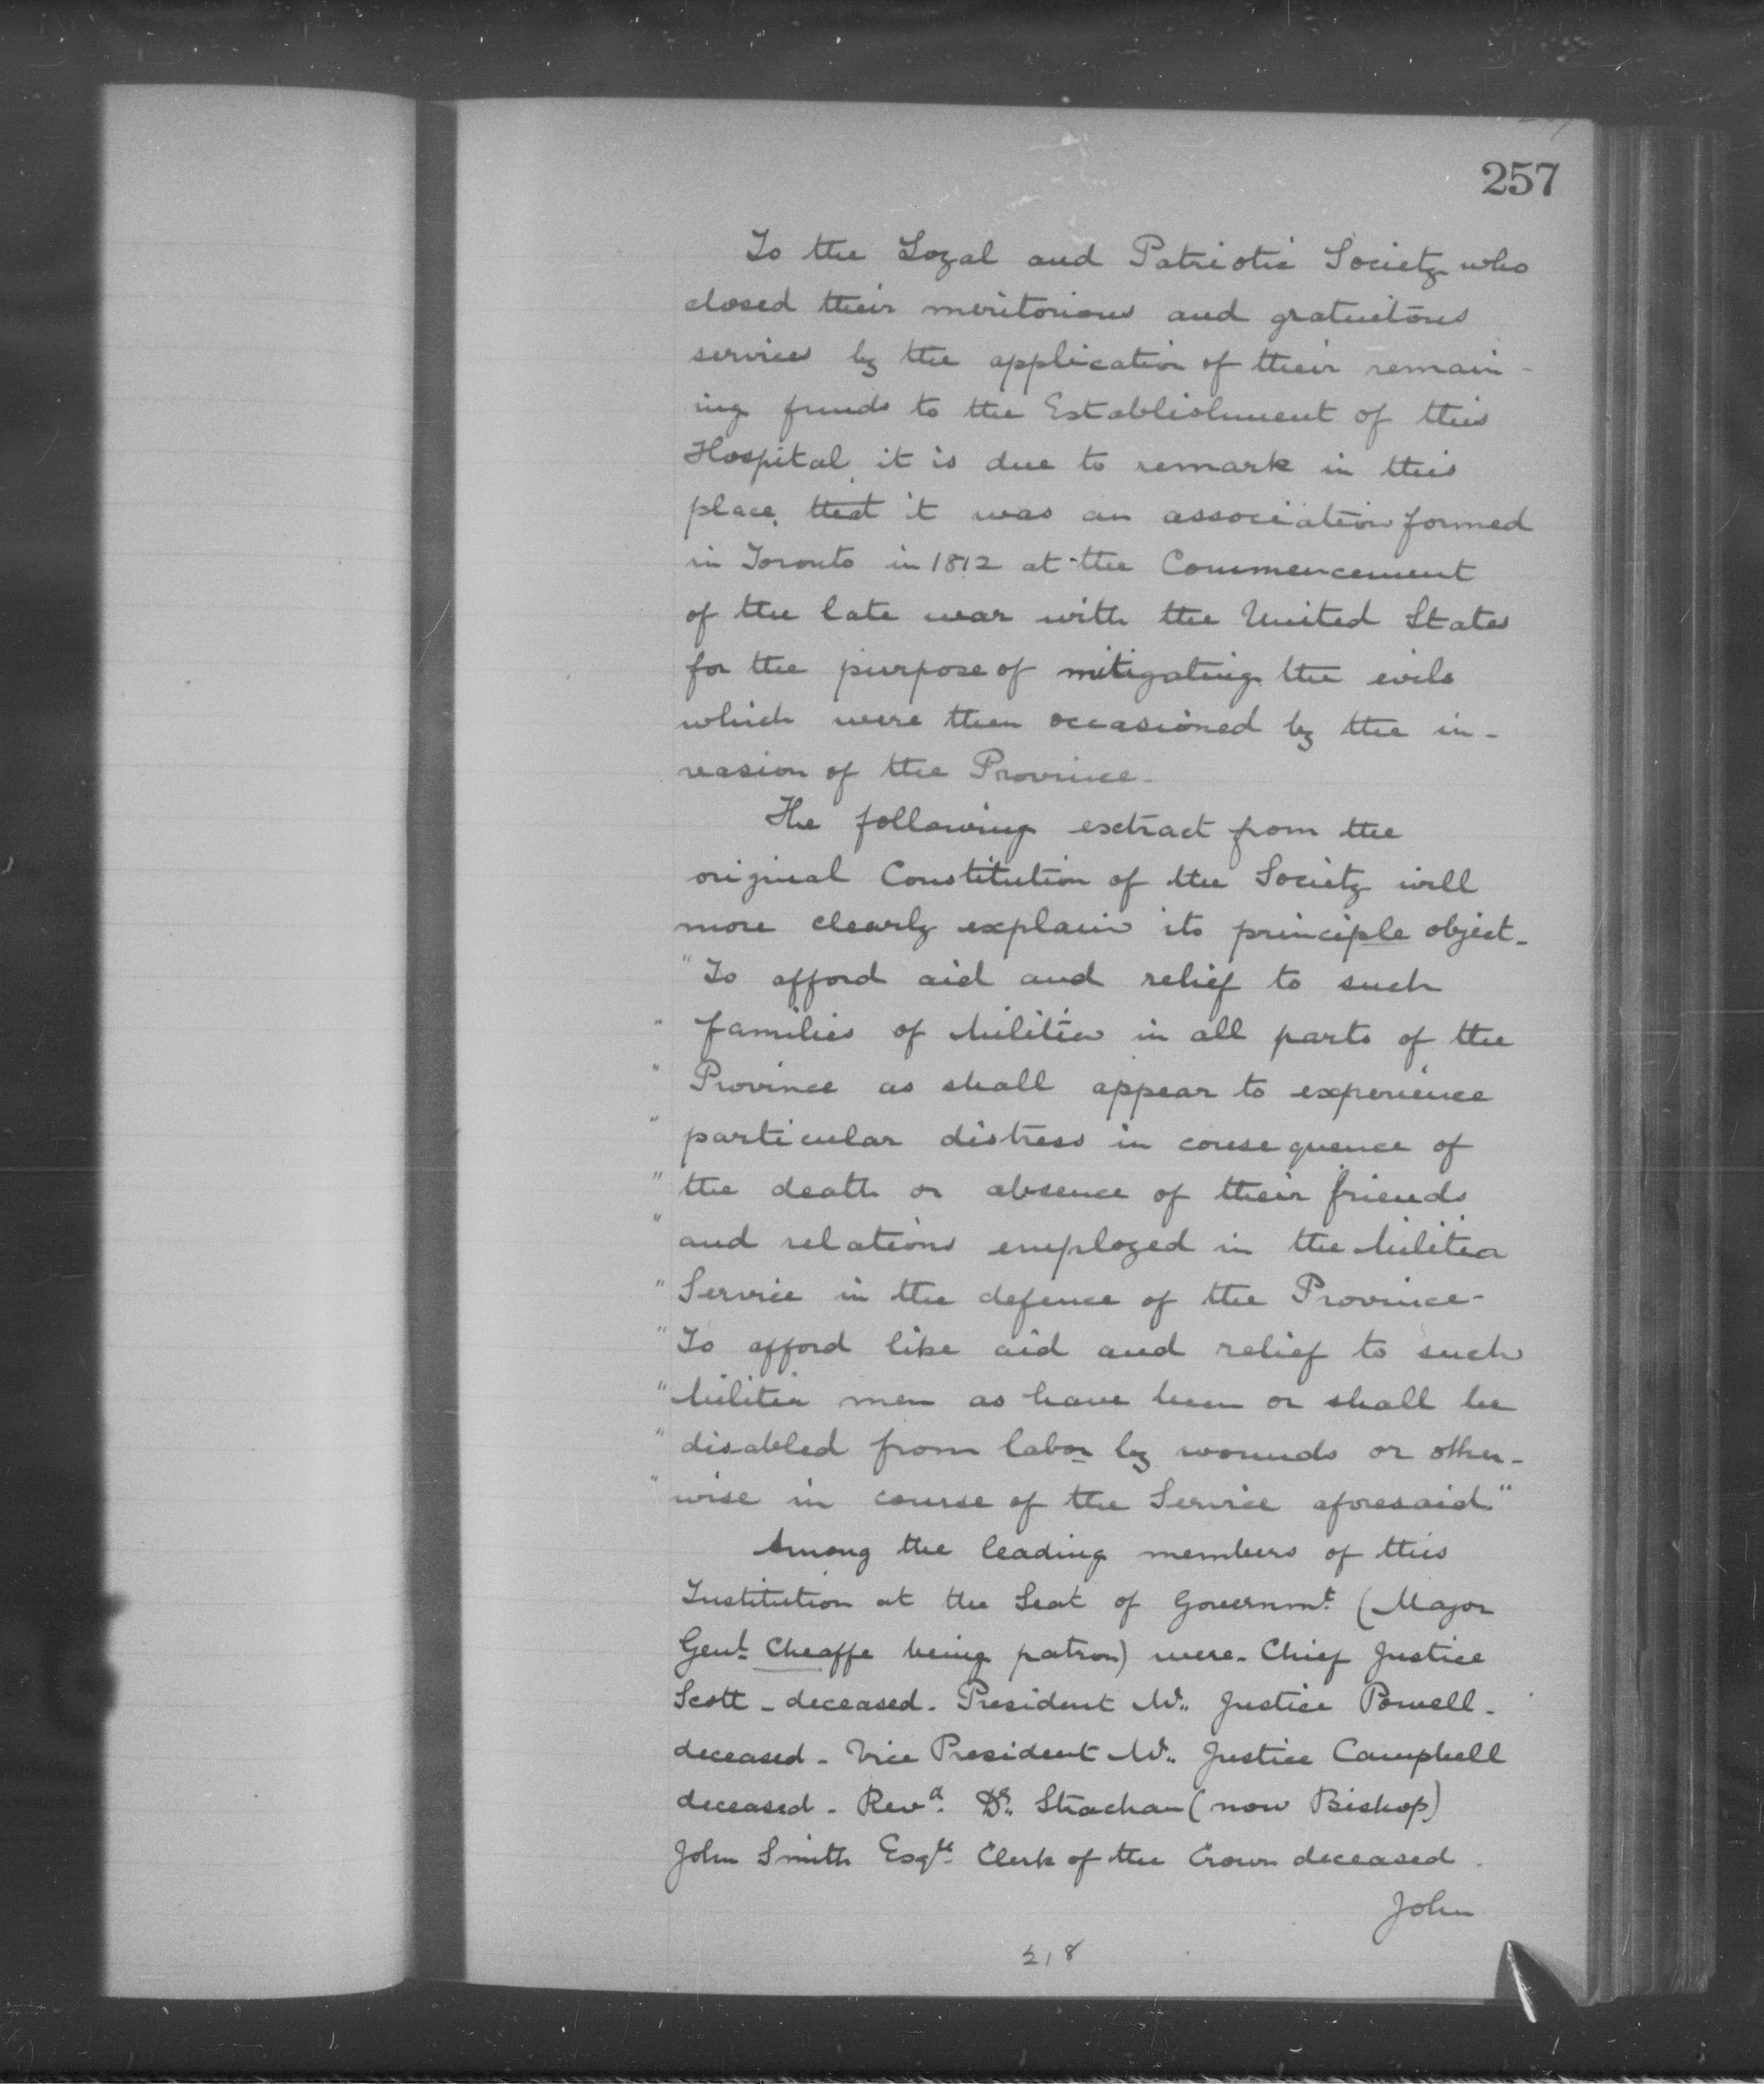 257
To the Loyal and Patriotic Society who
closed their meritorious and gratuitous
services by the application of their remain-
ing funds to the Establishment of this
Hospital it is due to remark in this
place, that it was an association formed
in Toronto in 1812 at the Commencement
of the late war with the United States
for the purpose of mitigating the evils
which were then occasioned by the in-
vasion of the Province-
The following extract from the
original Constitution of the Society will
more clearly explain its principle object-
"To afford aid and relief to such
" families of Militia in all parts of the
" Province as shall appear to experience
" particular distress in consequence of
" the death or absence of their friends
" and relations employed in the Militia
" Service in the defence of the Province-
"To afford like aid and relief to such
"Militia men as have been or shall be
" disabled from labor by wounds or other-
" wise in course of the Service aforesaid"
Among the leading members of this
Institution at the Seat of Governmt (Major
Genl Cheaffe being patron) were- Chief Justice
Scott - deceased - President Mr. Justice Powell -
deceased - Vice President Mr. Justice Campbell
deceased - Revd. Dr. Strachan (now Bishop)
John Smith Esqre Clerk of the Crown deceased -
John
218